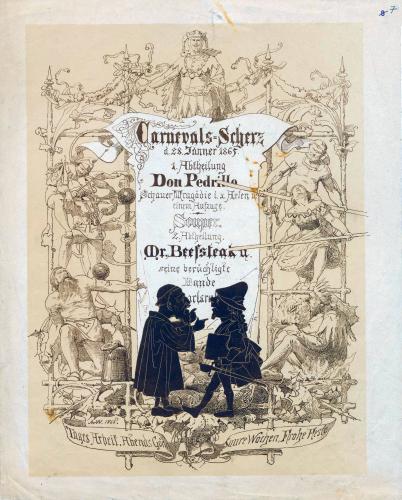 7
Carnevals=Scherz
d. 28. Jänner 1865
1. Abtheilung
Don Pedrillo
Schauer
Tragödie i. x. Acten u.
einem Aufzuge.
Souper.
2. Abtheilung.
Mr. Beefsteak u.
seine berüchtigte
Bande
Tages Arbeit, Abends Gäste
Saure Wochen, Frohe Feste